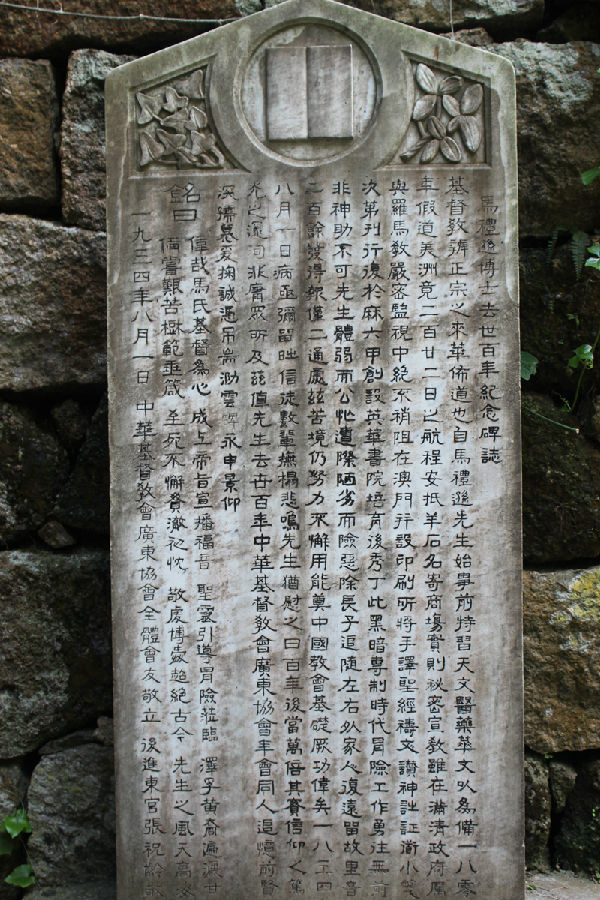 馬禮遜博士去世百年紀念碑誌
基督教正宗之來華佈道也自馬禮遜先生始學前特習天文醫藥華文以為備一八零
年假道美洲竟二百廿二日之航程安抵羊石名寄商場實則秘密宣教雖在滿清政府厲
與羅馬教嚴密監視中絕不稍沮在澳門并設印刷所將手譯聖經禱文讚神詩証衛小箋
次第刊行復於麻六甲創設英華書院培育後秀丁此黑暗專制時代冒險工作勇往無前
非神助不可先生體弱而公忙遭際陋劣而險惡除長子追隨左右外家人復遠留故里音
二百餘發得報僅二通處茲苦境仍努力不懈用能奠中國教會基礎厥功偉矣一八三四
八月一日病亟彌留時信徒數輩撫榻悲鳴先生猶慰之曰百年後當萬倍其賚信仰之篤
之遠詢非所及茲值先生去世百年中華基督教會廣東協會年會同人追懷前賢
深慕爰掬誠遙吊耑泐雲碑永申景仰
銘曰 偉哉馬氏基督為心 成上帝旨宣播福音 聖靈引導冒險蒞臨 澤孚黃裔遍溉甘
備嘗艱苦樹範垂箴 至死不懈貧澈忱 敬處博超絕古今 先生之風天高
一九三四年八月一日 中華基督教會廣東協會全體會友敬立 後進東官張祝齡